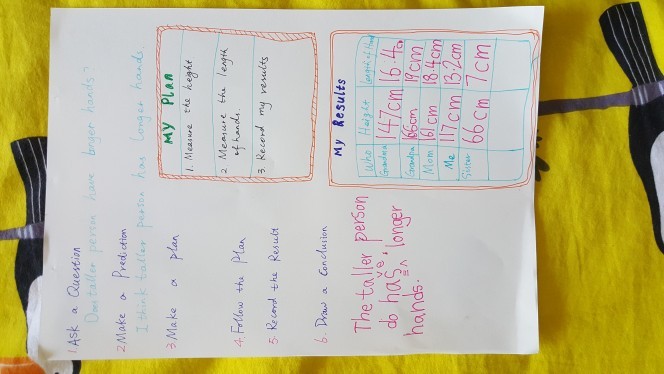 1 Ask a Question
Does taller person have longer hands?
2 Make a Prediction
I think taller person has longer hands.
3 Make a plan
4. Follow the Plan
5. Record the Result
6. Draw a Conclusion
The taller person
do has longer
hands.
My Plan
1. Measure the height
2 Measure the length
of hands.
3. Record my results
My Results
Who Height Length of Hand
Grandma 147cm 16.4c
Grandpa 166cm 19cm
Mom 161cm 18.4cm
Me 117cm 13.2cm
Sister 66cm 7cm